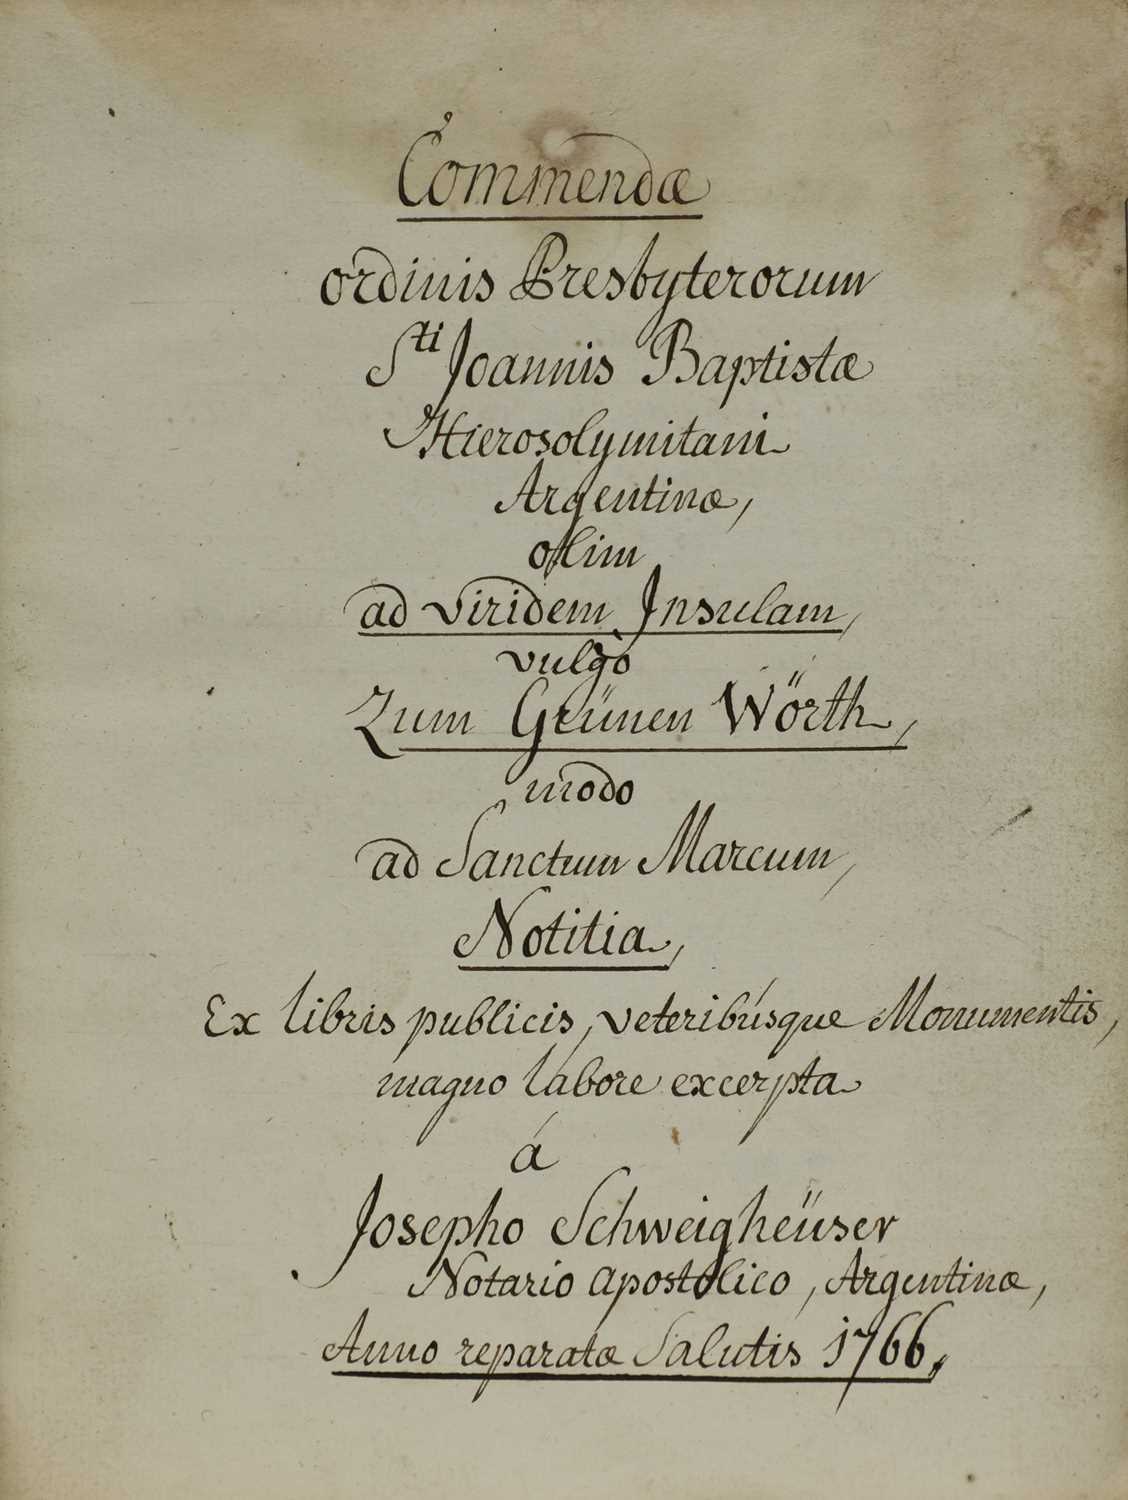 Commendæ
ordinis Presbyterorum
Sti Joannis Baptistæ
Hierosolymitani
Argentinæ,
olim
ad viridem Insulam,
vulgò
Zum Grünen Wörth,
modo
ad Sanctum Marcum,
Notitia,
Ex libris publicis, veteribúsque Monumentis,
magno labore excerpta
á
Josepho Schweigheüser
Notario apostolico, Argentinæ,
Anno reparatæ Salutis 1766,